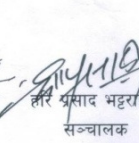 हरि प्रसाद भट्टरा
सञ्चालक